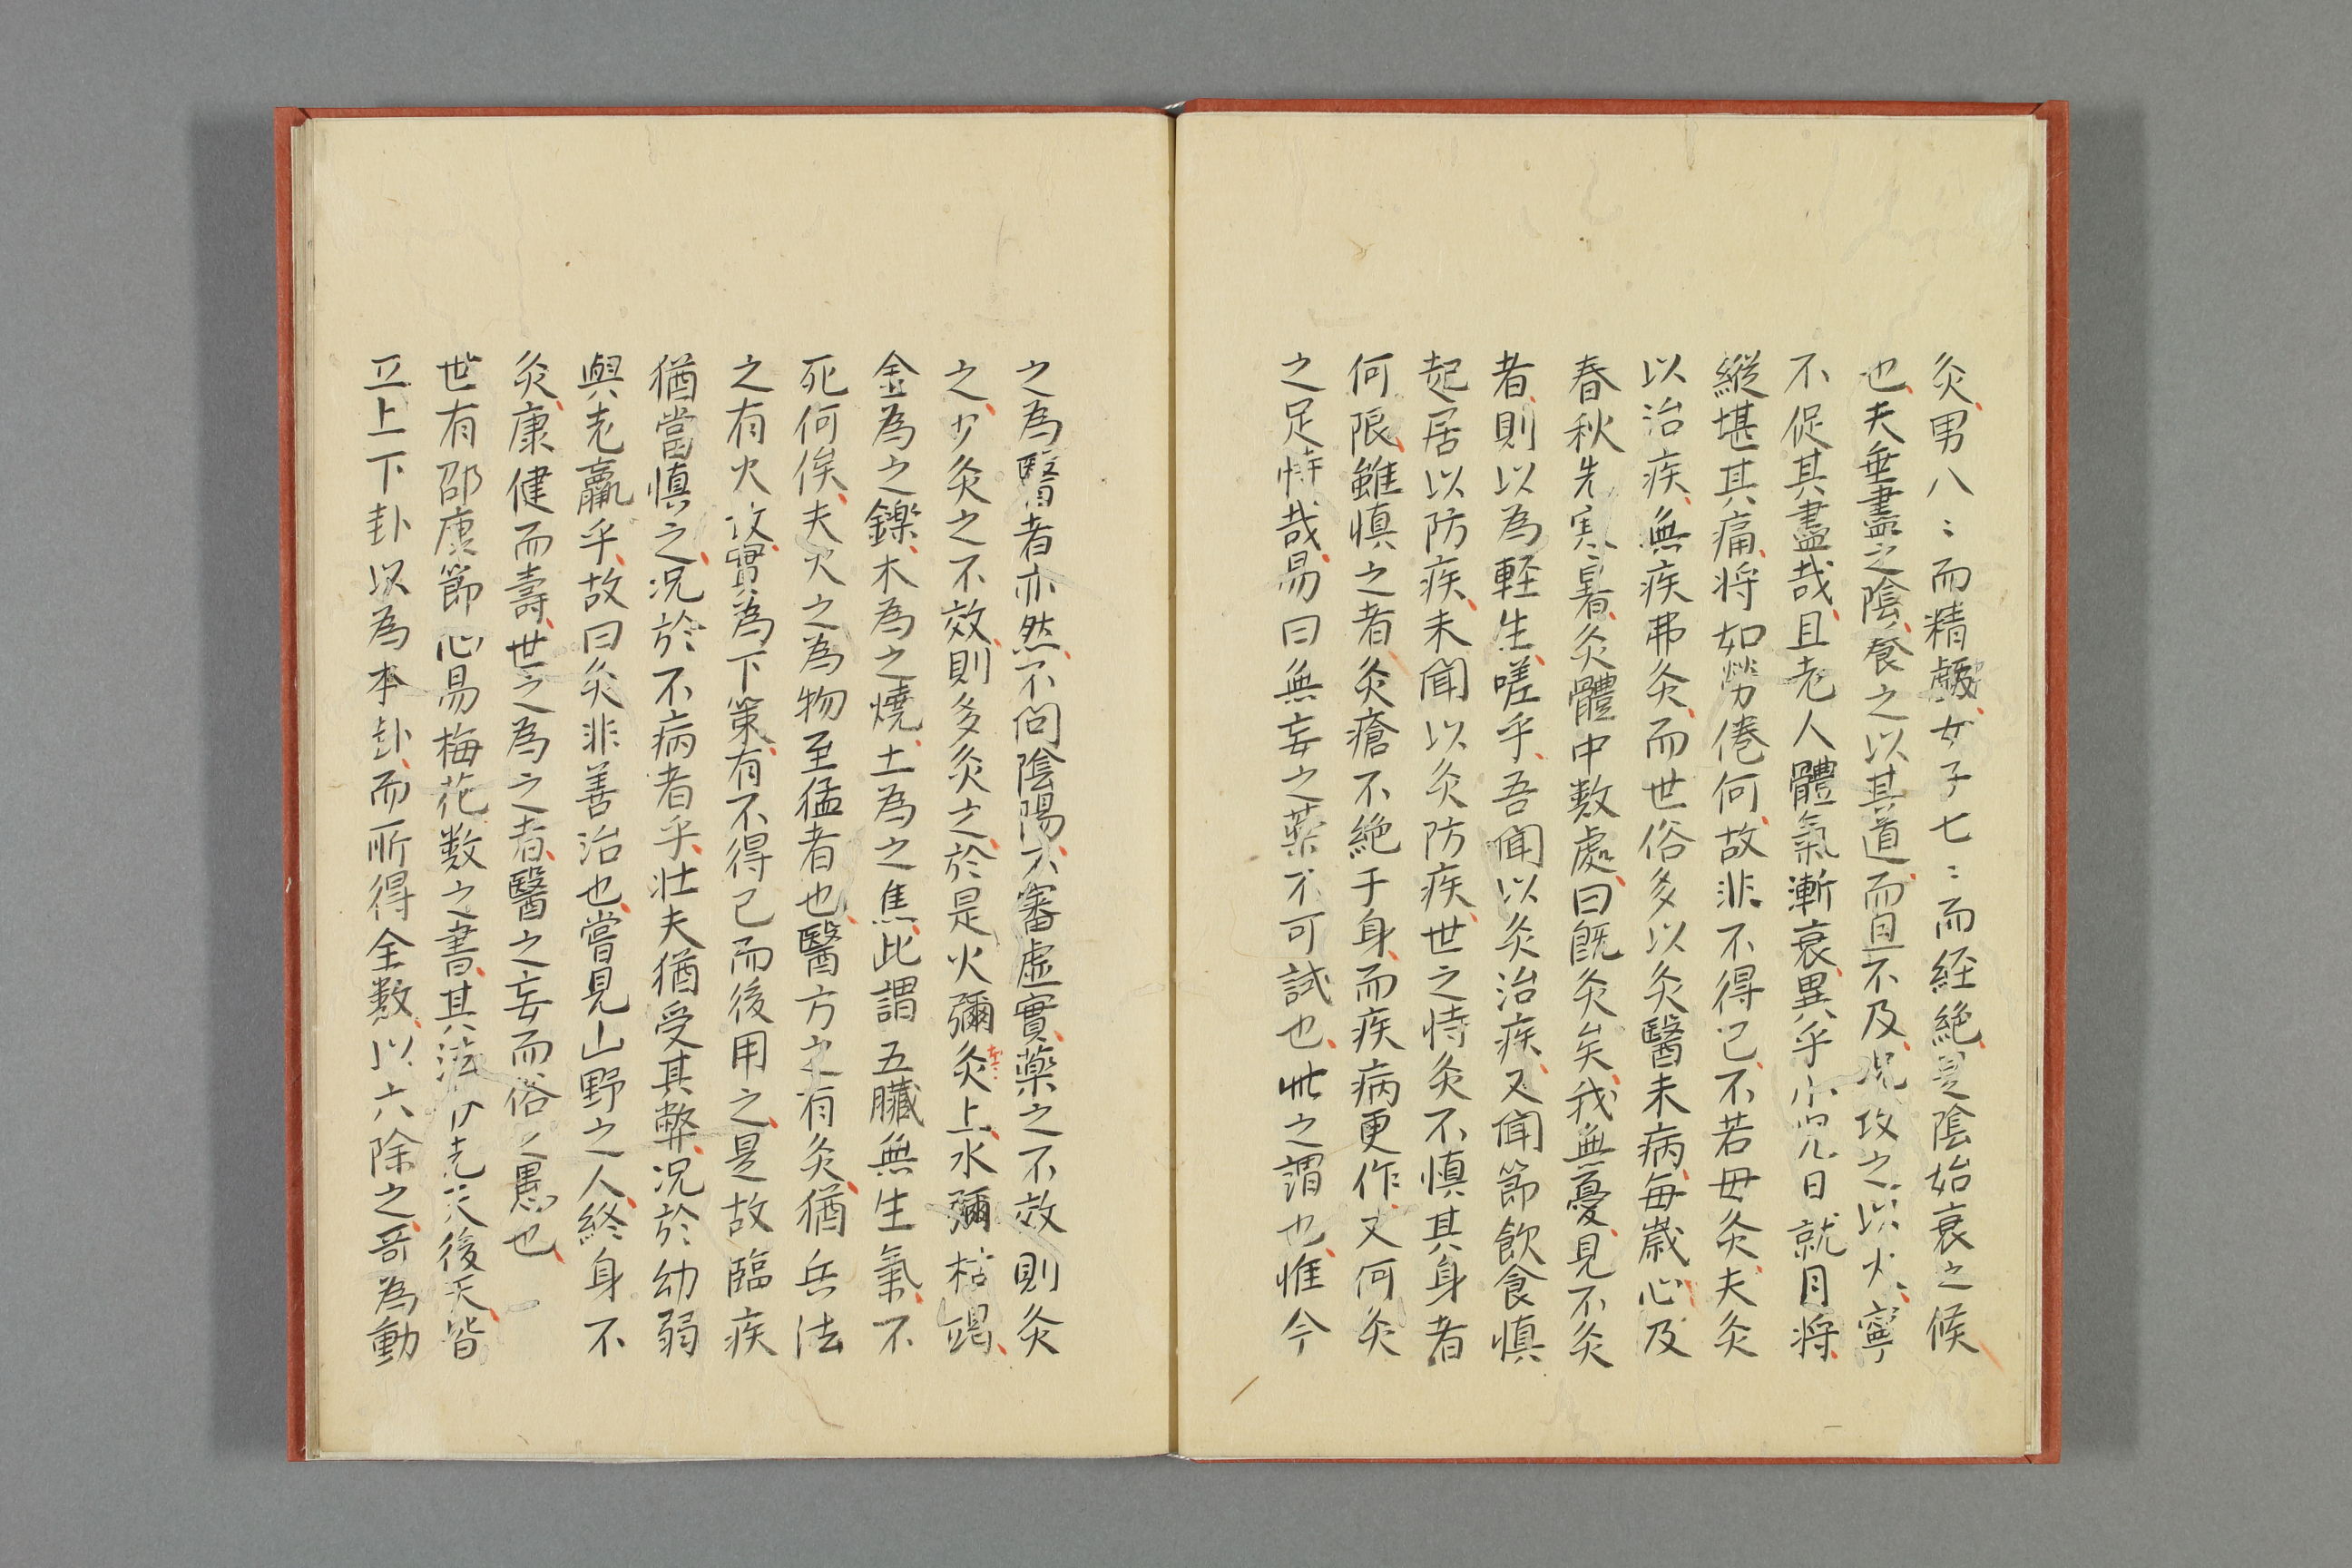 灸男八〻而精虧女子七〻而経絶是陰始衰之候
也夫垂盡之陰養之以其道而且不及況攻之以火寧
不促其盡哉且老人體氣漸衰異乎小児日就月将
縦堪其痛将如勞倦何故非不得已不若毋灸夫灸
以治疾無疾弗灸而世俗多以灸醫未病毎歳心及
春秋先寒暑灸體中数處曰既灸矣我無憂見不灸
者則以為軽生嗟乎吾聞以灸治疾又聞節飲食慎
起居以防疾未聞以灸防疾世之恃灸不慎其身者
何限雖慎之者灸瘡不絶于身而疾病更作又何灸
之足恃哉易曰無妄之薬不可試也此之謂也惟今
之為醫者亦然不問陰陽不審虚實薬之不效則灸
之少灸之不效則多灸之於是火彌灸上水彌枯竭
金為之鑠木為之燒土為之焦此謂五臓無生氣不
死何俟夫火之為物至猛者也醫方之有灸猶兵法
之有火攻實為下策有不得已而後用之是故臨疾
猶當慎之况於不病者乎壮夫猶受其弊况於幼弱
與老羸乎故曰灸非善治也嘗見山野之人終身不
灸康健而壽世之為之者醫之妄而俗之愚也
世有邵康節心易梅花数之書其法以先天後天皆
立上下卦以為本卦而所得全数以六除之奇為動